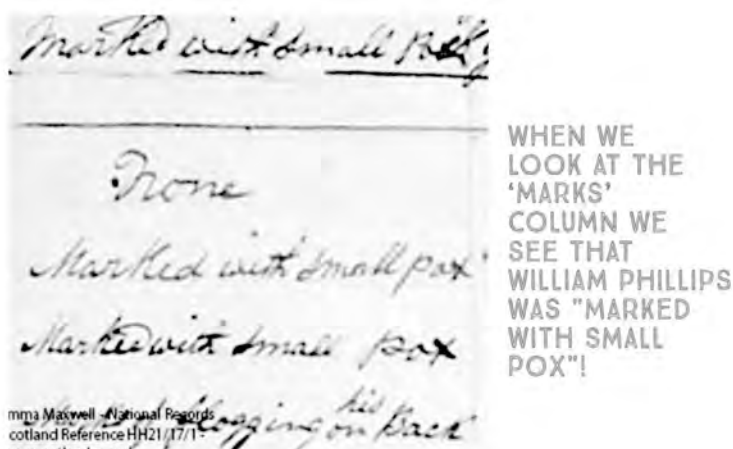 Marked with Small Pox
None
Marked with Small pox
Marked with Small pox
Marks of flogging on his Back
mma Maxwell - National Records
cotland Reference HH21/17/1 -
WHEN WE
LOOK AT THE
‘MARKS’
COLUMN WE
SEE THAT
WILLIAM PHILLIPS
WAS "MARKED
WITH SMALL
POX"!